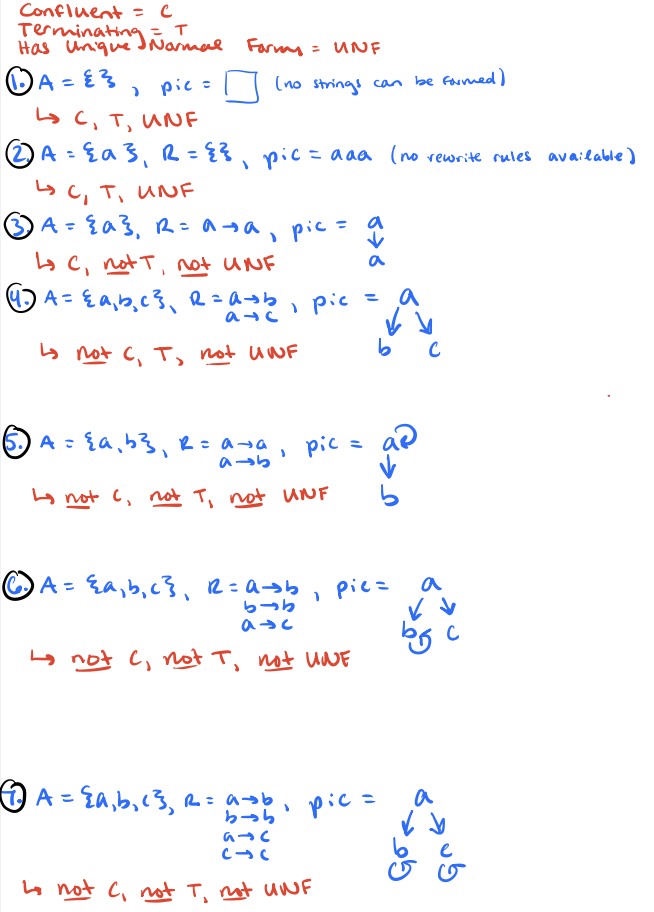 Confluent = C
Terminating = T
Has Unique Normal Forms = UNF
1. A = {}, pic = □ (no strings can be formed)
↳ C, T, UNF
2. A = {a}, R = {}, pic = aaa (no rewrite rules available)
↳ C, T, UNF
3. A = {a}, R = a→a, pic = a
↓
a
↳ C, not T, not UNF
4. A = {a,b,c}, R = a→b, pic = a
a→c
↙ ↘
b c
↳ not C, T, not UNF
5. A = {a,b}, R = a→a, pic = a
a→b
↓
b
↳ not C, not T, not UNF
6. A = {a,b,c}, R = a→b, pic = a
b→b
↙ ↘
a→c
b c
↳ not C, not T, not UNF
7. A = {a,b,c}, R = a→b, pic = a
b→b
↙ ↘
a→c
b c
c→c
↳ not C, not T, not UNF